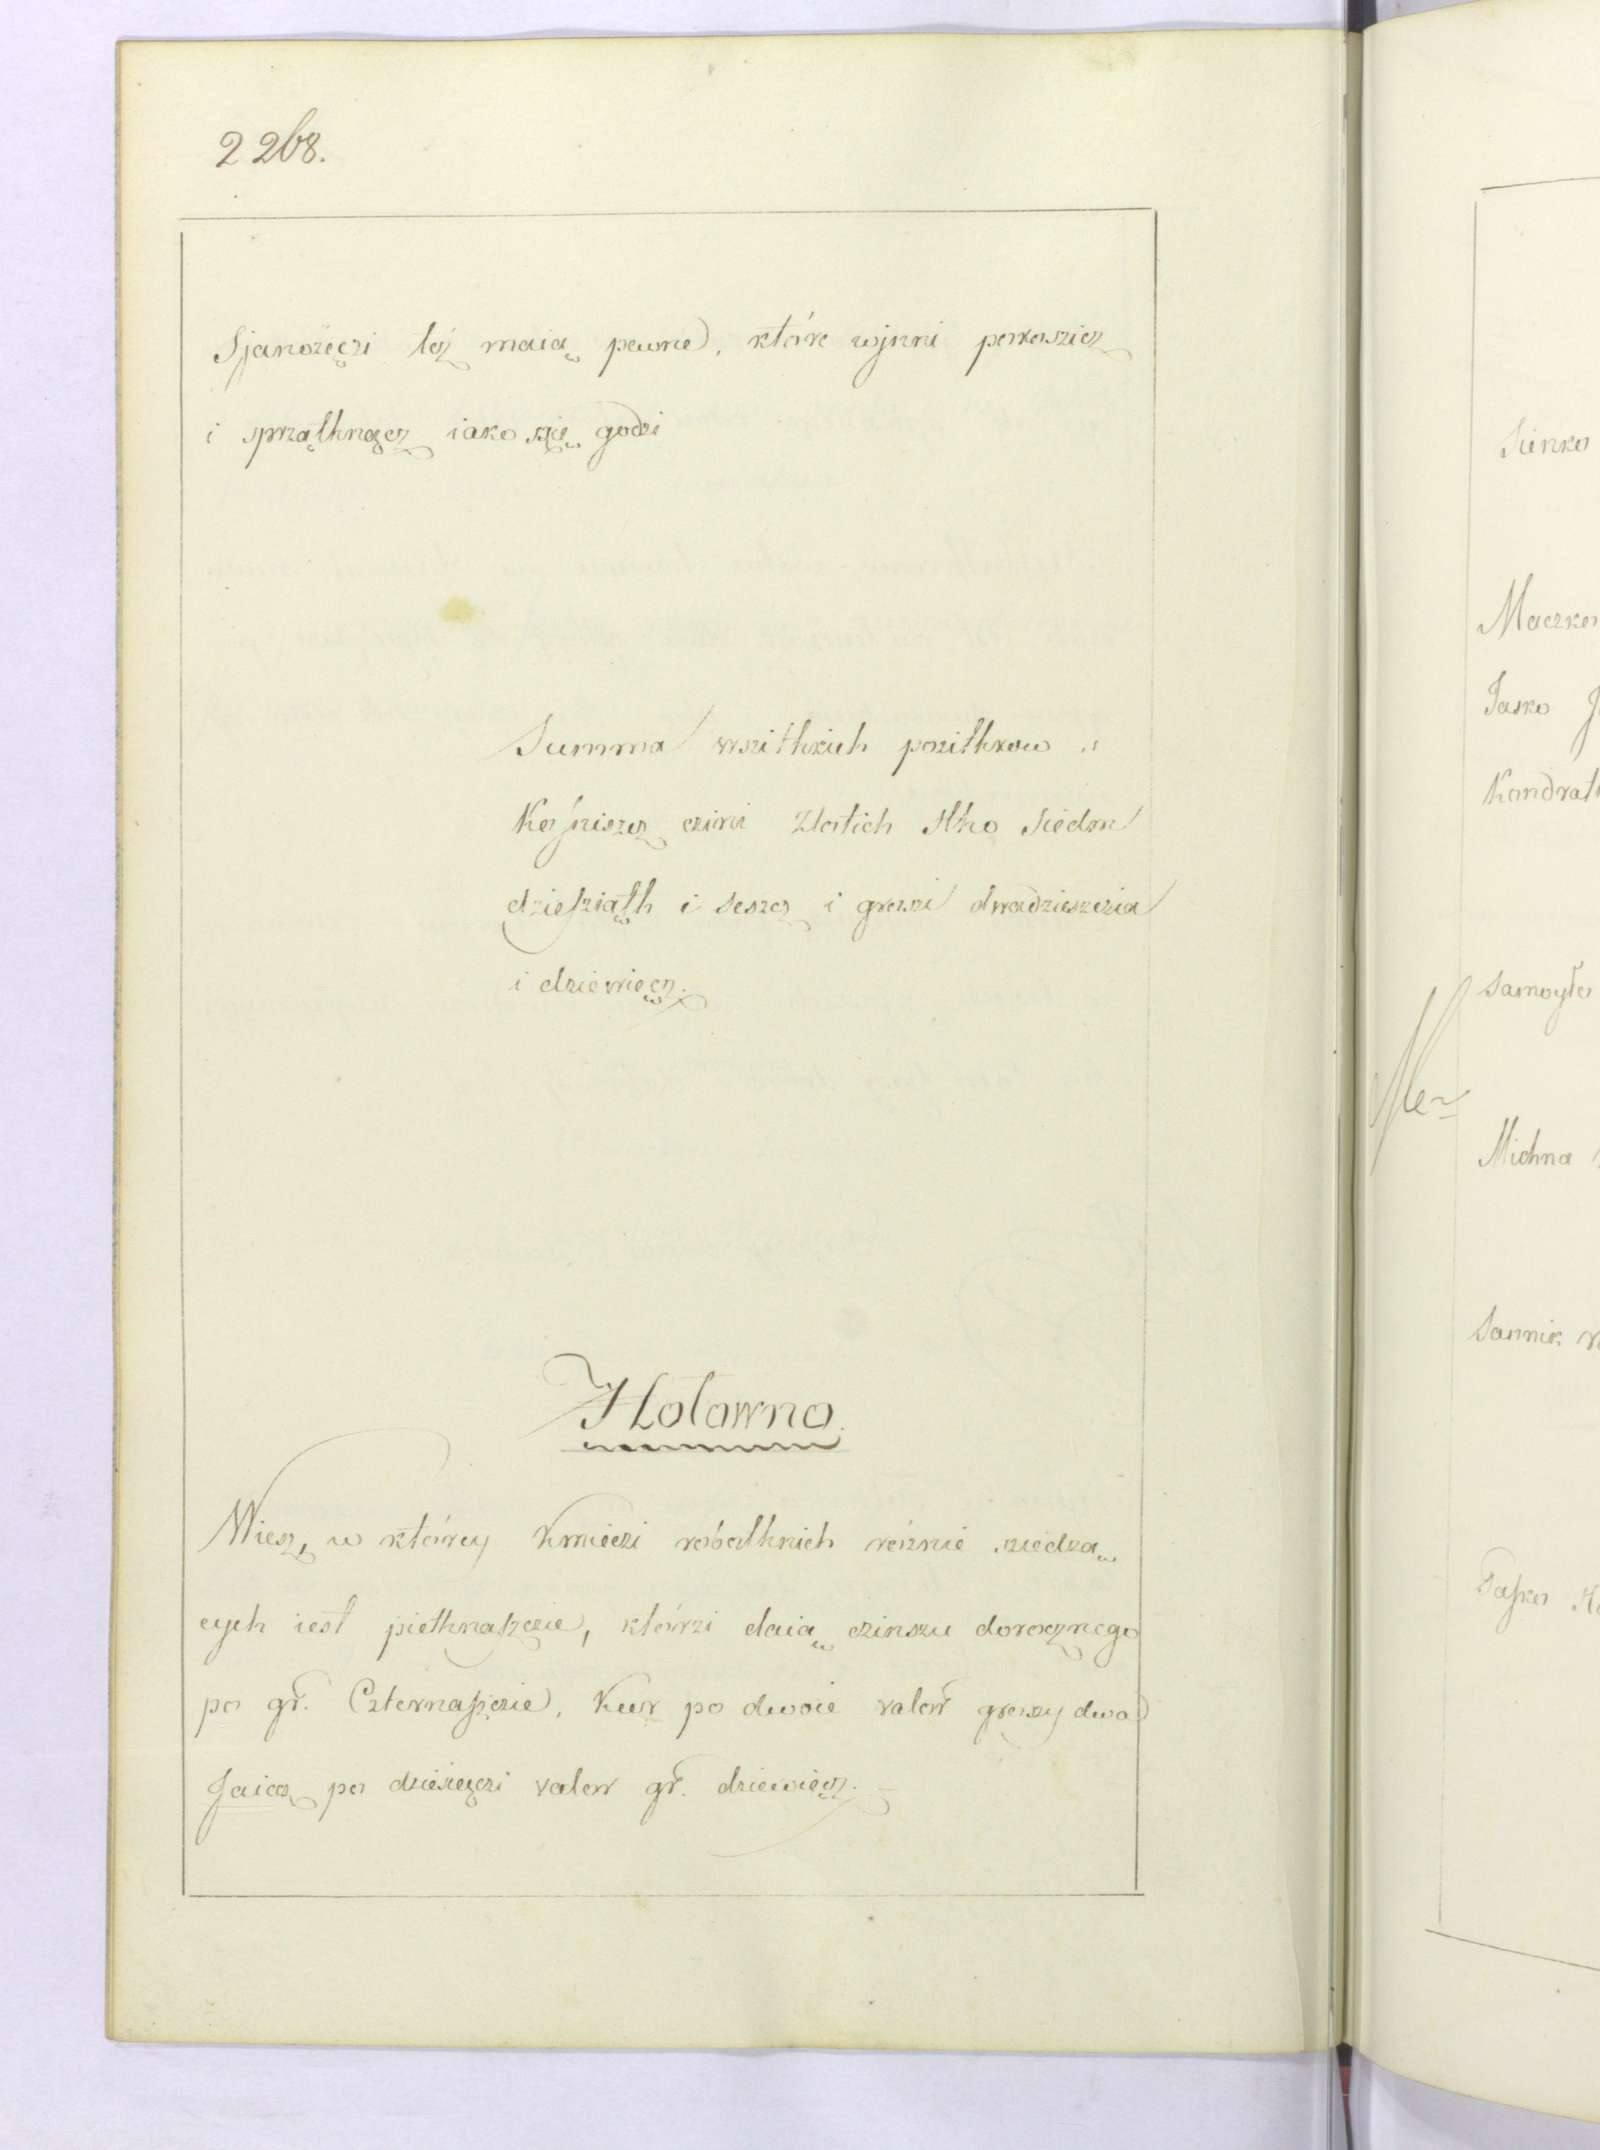 2268.
Sjanożęczi też maią pewne, które wjnni pokoszicz
i sprzątknącz iako szię godzi
Summa wszitkich pozitkow
czini Zlotich Stho Siedm
dziesziąth i sescz i groszi dwadzieszczia
i dziewięcz.
Holowno.
Wiesz, w którey Kmieczi robothnich rożnie sziedzą
cych iest piethnaszczie, którzi daią czinszu dorocznego
po gr. Czternaszczie, Kur po dwoie valor groszy dwa
Jaiecz po dziesięczi valor gr. dziewięcz.
Sienko
Maczko
Jasko
Kondrath
Samoyło
Michna
Sannik